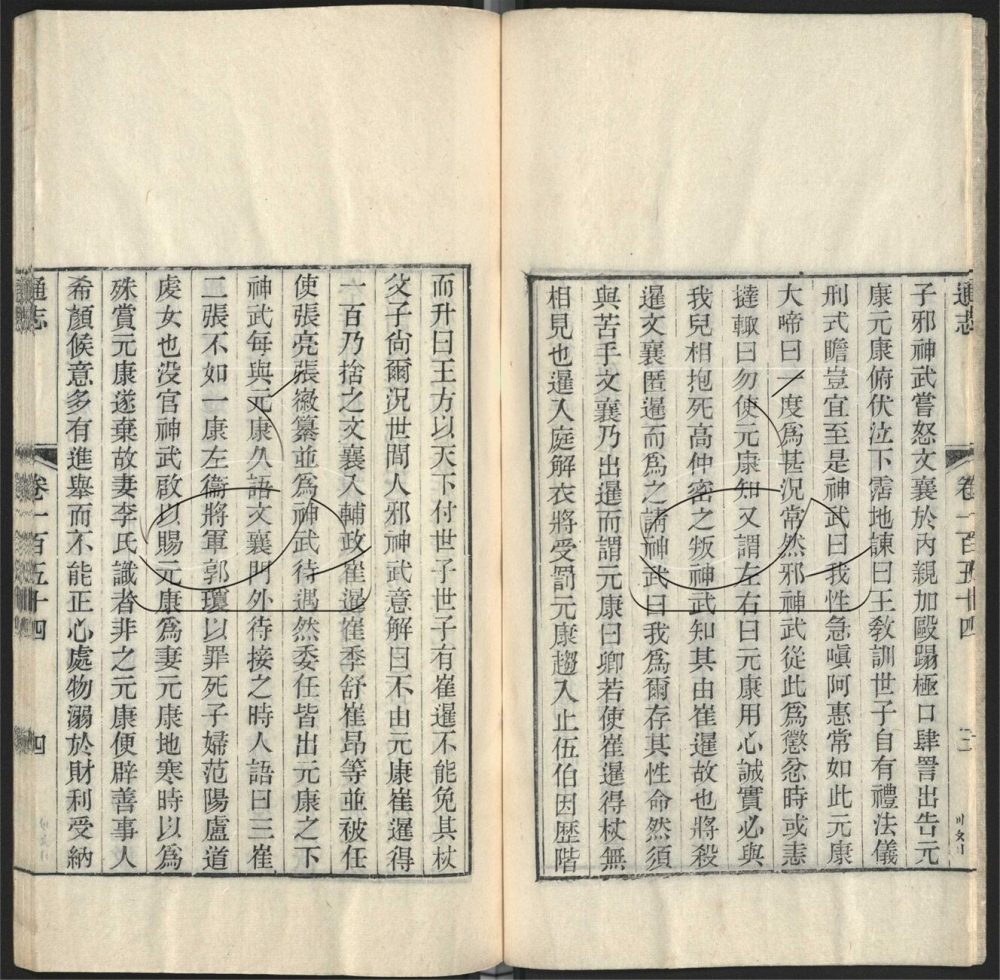 通志
卷一百五十四
子邪神武嘗怒文襄於內親加毆蹋極口肆詈出告元
康元康俯伏泣下霑地諫曰王教訓世子自有禮法儀
刑式瞻豈宜至是神武曰我性急嗔阿惠常如此元康
大啼曰一度爲甚況常然邪神武從此爲懲忿時或恚
撻輙曰勿使元康知又謂左右曰元康用心誠實必與
我兒相抱死高仲密之叛神武知其由崔暹故也將殺
暹文襄匿暹而爲之請神武曰我爲爾存其性命然須
與苦手文襄乃出暹而謂元康曰卿若使崔暹得杖無
相見也暹入庭解衣將受罰元康趨入止伍伯因歷階
而升曰王方以天下付世子世子有崔暹不能免其杖
父子尙爾況世間人邪神武意解曰不由元康崔暹得
一百乃捨之文襄入輔政崔暹崔季舒崔昂等並被任
使張亮張徽纂並爲神武待遇然委任皆出元康之下
神武每與元康久語文襄門外待接之時人語曰三崔
二張不如一康左衞將軍郭瓊以罪死子婦范陽盧道
虔女也没官神武啟以賜元康爲妻元康地寒時以爲
殊賞元康遂棄故妻李氏識者非之元康便辟善事人
希顏候意多有進舉而不能正心處物溺於財利受納
通志
卷一百五十四
四